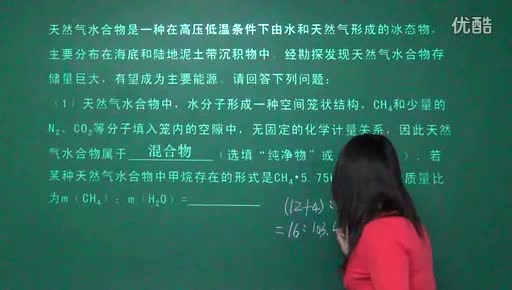 优酷
天然气水合物是一种在高压低温条件下由水和天然气形成的冰态物,
主要分布在海底和陆地泥土带沉积物中。经勘探发现天然气水合物存
储量巨大,有望成为主要能源。请回答下列问题:
(1)天然气水合物中,水分子形成一种空间笼状结构,CH₄和少量的
N₂、CO₂等分子填入笼内的空隙中,无固定的化学计量关系,因此天然
气水合物属于 混合物 (选填“纯净物”或 )。若
某种天然气水合物中甲烷存在的形式是CH₄•5.75 质量比
为m(CH₄):m(H₂O)=
(12+4):
=16:103.